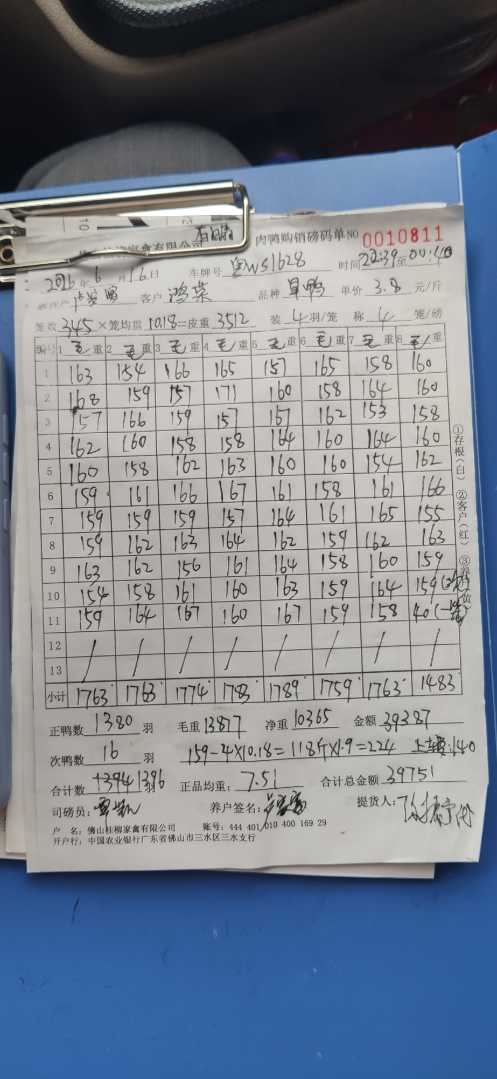 家禽有限公司 肉鸭购销磅码单 NO 0010811
2026年6月16日 车牌号 粤WS1628 时间 22:39 至 00:40
客户 鸿荣 品种 旱鸭 单价 3.8 元/斤
笼数 345 × 笼均重 10.18 = 皮重 3512 装 4 羽/笼 称 4 笼/磅
编号 1 毛重 2 毛重 3 毛重 4 毛重 5 毛重 6 毛重 7 毛重 8 毛重
1 163 154 166 165 157 165 158 160
2 168 159 157 171 160 158 164 160
3 157 166 159 157 167 162 153 158
4 162 160 158 158 164 160 164 160
5 160 158 162 163 160 160 154 162
6 159 161 166 167 161 158 161 166
7 159 159 159 157 164 161 165 155
8 159 162 163 164 162 159 162 163
9 163 162 156 161 164 158 160 159
10 154 158 161 160 163 159 164 159
11 159 164 167 160 167 159 158 40
12 / / / / / / / /
13
小计 1763 1763 1774 1783 1789 1759 1763 1483
①存根(白) ②客户(红)
正鸭数 1380 羽 毛重 13877 净重 10365 金额 39387
次鸭数 16 羽 159-4×10.18=118斤×1.9=224 上车费:140
合计数 1394 1396 羽 正品均重: 7.51 合计总金额 39751
司磅员: 养户签名: 提货人:
户 名: 佛山桂柳家禽有限公司 账号: 444 401 010 400 169 29
开户行: 中国农业银行广东省佛山市三水区三水支行